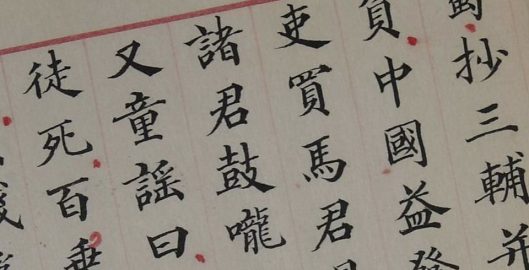 抄三輔并
負中國益發
吏買馬君
諸君鼓嚨
又童謠曰
徒死百乘